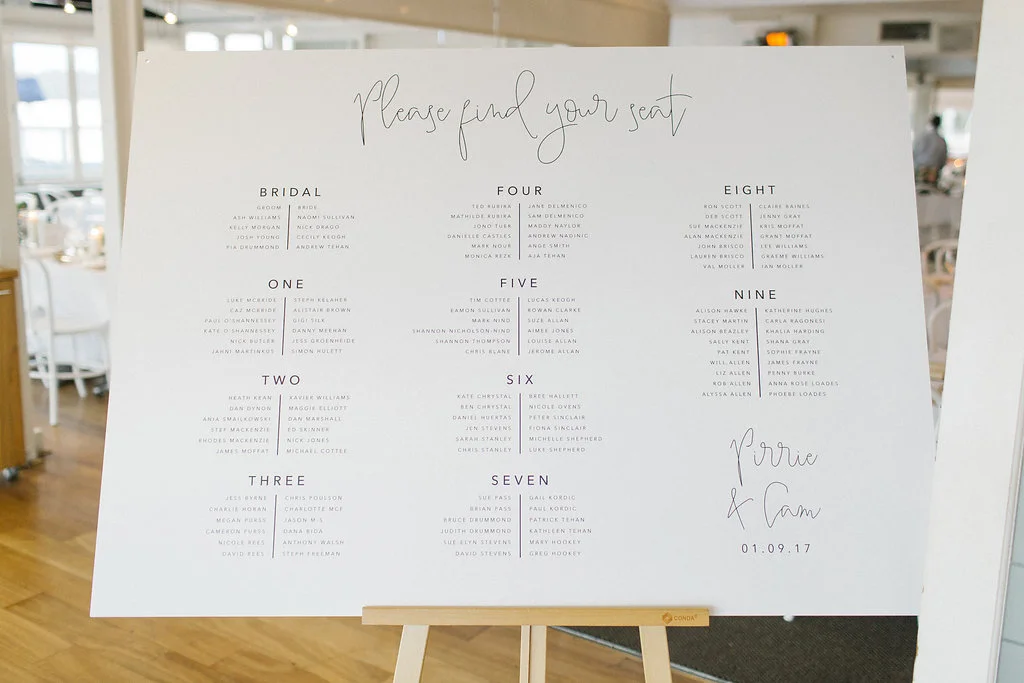 Please find your seat
BRIDAL
GROOM | BRIDE
ASH WILLIAMS | NAOMI SULLIVAN
KELLY MORGAN | NICK DRAGO
JOSH YOUNG | CECILY KEOGH
PIA DRUMMOND | ANDREW TEHAN
ONE
LUKE MCBRIDE | STEPH KELAHER
CAZ MCBRIDE | ALISTAIR BROWN
PAUL O'SHANNESSEY | GIGI SILK
KATE O'SHANNESSEY | DANNY MEEHAN
NICK BUTLER | JESS GROENHEIDE
JAHNI MARTINKUS | SIMON HULETT
TWO
HEATH KEAN | XAVIER WILLIAMS
DAN DYNON | MAGGIE ELLIOTT
ANJA SMAILKOWSKI | DAN MARSHALL
STEF MACKENZIE | ED SKINNER
RHODES MACKENZIE | NICK JONES
JAMES MOFFAT | MICHAEL COTTEE
THREE
JESS BYRNE | CHRIS POULSON
CHARLIE HORAN | CHARLOTTE MCE
MEGAN PURSS | JASON M-S
CAMERON PURSS | DANA BIDA
NICOLE REES | ANTHONY WALSH
DAVID REES | STEPH FREEMAN
FOUR
TED RUBIRA | JANE DELMENICO
MATHILDE RUBIRA | SAM DELMENICO
JONO TUER | MADDY NAYLOR
DANIELLE CASTLES | ANDREW NADINIC
MARK NOUR | ANGE SMITH
MONICA REZK | AJA TEHAN
FIVE
TIM COTTEE | LUCAS KEOGH
EAMON SULLIVAN | ROWAN CLARKE
MARK NIND | SUZE ALLAN
SHANNON NICHOLSON-NIND | AIMEE JONES
SHANNON THOMPSON | LOUISE ALLAN
CHRIS BLANE | JEROME ALLAN
SIX
KATE CHRYSTAL | BREE HALLETT
BEN CHRYSTAL | NICOLE OVENS
DANIEL HUERTAS | PETER SINCLAIR
JEN STEVENS | FIONA SINCLAIR
SARAH STANLEY | MICHELLE SHEPHERD
CHRIS STANLEY | LUKE SHEPHERD
SEVEN
SUE PASS | GAIL KORDIC
BRIAN PASS | PAUL KORDIC
BRUCE DRUMMOND | PATRICK TEHAN
JUDITH DRUMMOND | KATHLEEN TEHAN
SUE-ELYN STEVENS | MARY HOOKEY
DAVID STEVENS | GREG HOOKEY
EIGHT
RON SCOTT | CLAIRE RAINES
DEB SCOTT | JENNY GRAY
SUE MACKENZIE | KRIS MOFFAT
ALAN MACKENZIE | GRANT MOFFAT
JOHN BRISCO | LEE WILLIAMS
LAUREN BRISCO | GRAEME WILLIAMS
VAL MOLLER | IAN MOLLER
NINE
ALISON HAWKE | KATHERINE HUGHES
STACEY MARTIN | CARLA RAGONESI
ALISON BEAZLEY | KHALIA HARDING
SALLY KENT | SHANA GRAY
PAT KENT | SOPHIE FRAYNE
WILL ALLEN | JAMES FRAYNE
LIZ ALLEN | PENNY BURKE
ROB ALLEN | ANNA ROSE LOADES
ALYSSA ALLEN | PHOEBE LOADES
Pirrie
& Cam
01.09.17
CONDA